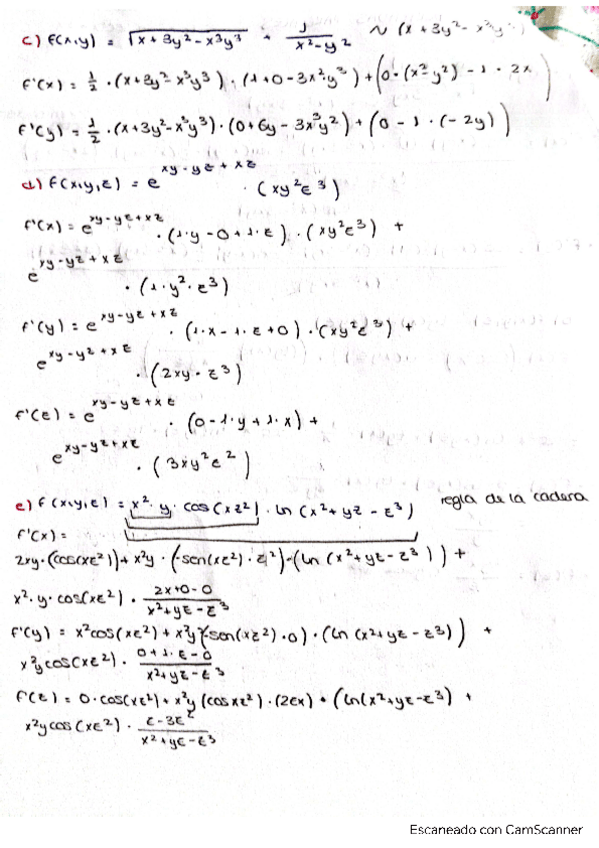 c) f(x,y) = √(x + 3y² - x³y³) + 1/(x² - y²) ~ (x + 3y² - x³y
f'(x) = 1/2 · (x+3y² - x³y³) · (1+0-3x²y³) + (0·(x² - y²) - 1 · 2x)
f'(y) = 1/2 · (x+3y²-x³y³) · (0+6y - 3x³y²) + (0 - 1 · (-2y))
d) f(x,y,z) = e^(xy-yz+xz) · (xy²z³)
f'(x) = e^(xy-yz+xz) · (1·y - 0 + 1·z) · (xy²z³) +
e^(xy-yz+xz) · (1·y²·z³)
f'(y) = e^(xy-yz+xz) · (1·x - 1·z + 0) · (xy²z³) +
e^(xy-yz+xz) · (2xy·z³)
f'(z) = e^(xy-yz+xz) · (0 - 1·y + 1·x) +
e^(xy-yz+xz) · (3xy²z²)
e) f(x,y,z) = x² · y · cos(xz²) · ln(x² + yz - z³) regla de la cadera
f'(x) =
2xy·(cos(xz²)) + x²y · (-sen(xz²) · z²)·(ln(x² + yz - z³)) +
x²·y·cos(xz²) · (2x+0-0)/(x²+yz-z³)
f'(y) = x²cos(xz²) + x²y(-sen(xz²)·0) · (ln(x²+yz-z³)) +
x²ycos(xz²) · (0+1·z-0)/(x²+yz-z³)
f'(z) = 0·cos(xz²) + x²y(cosxz²)·(2zx) · (ln(x²+yz-z³) +
x²ycos(xz²) · (z-3z²)/(x²+yz-z³)
Escaneado con CamScanner